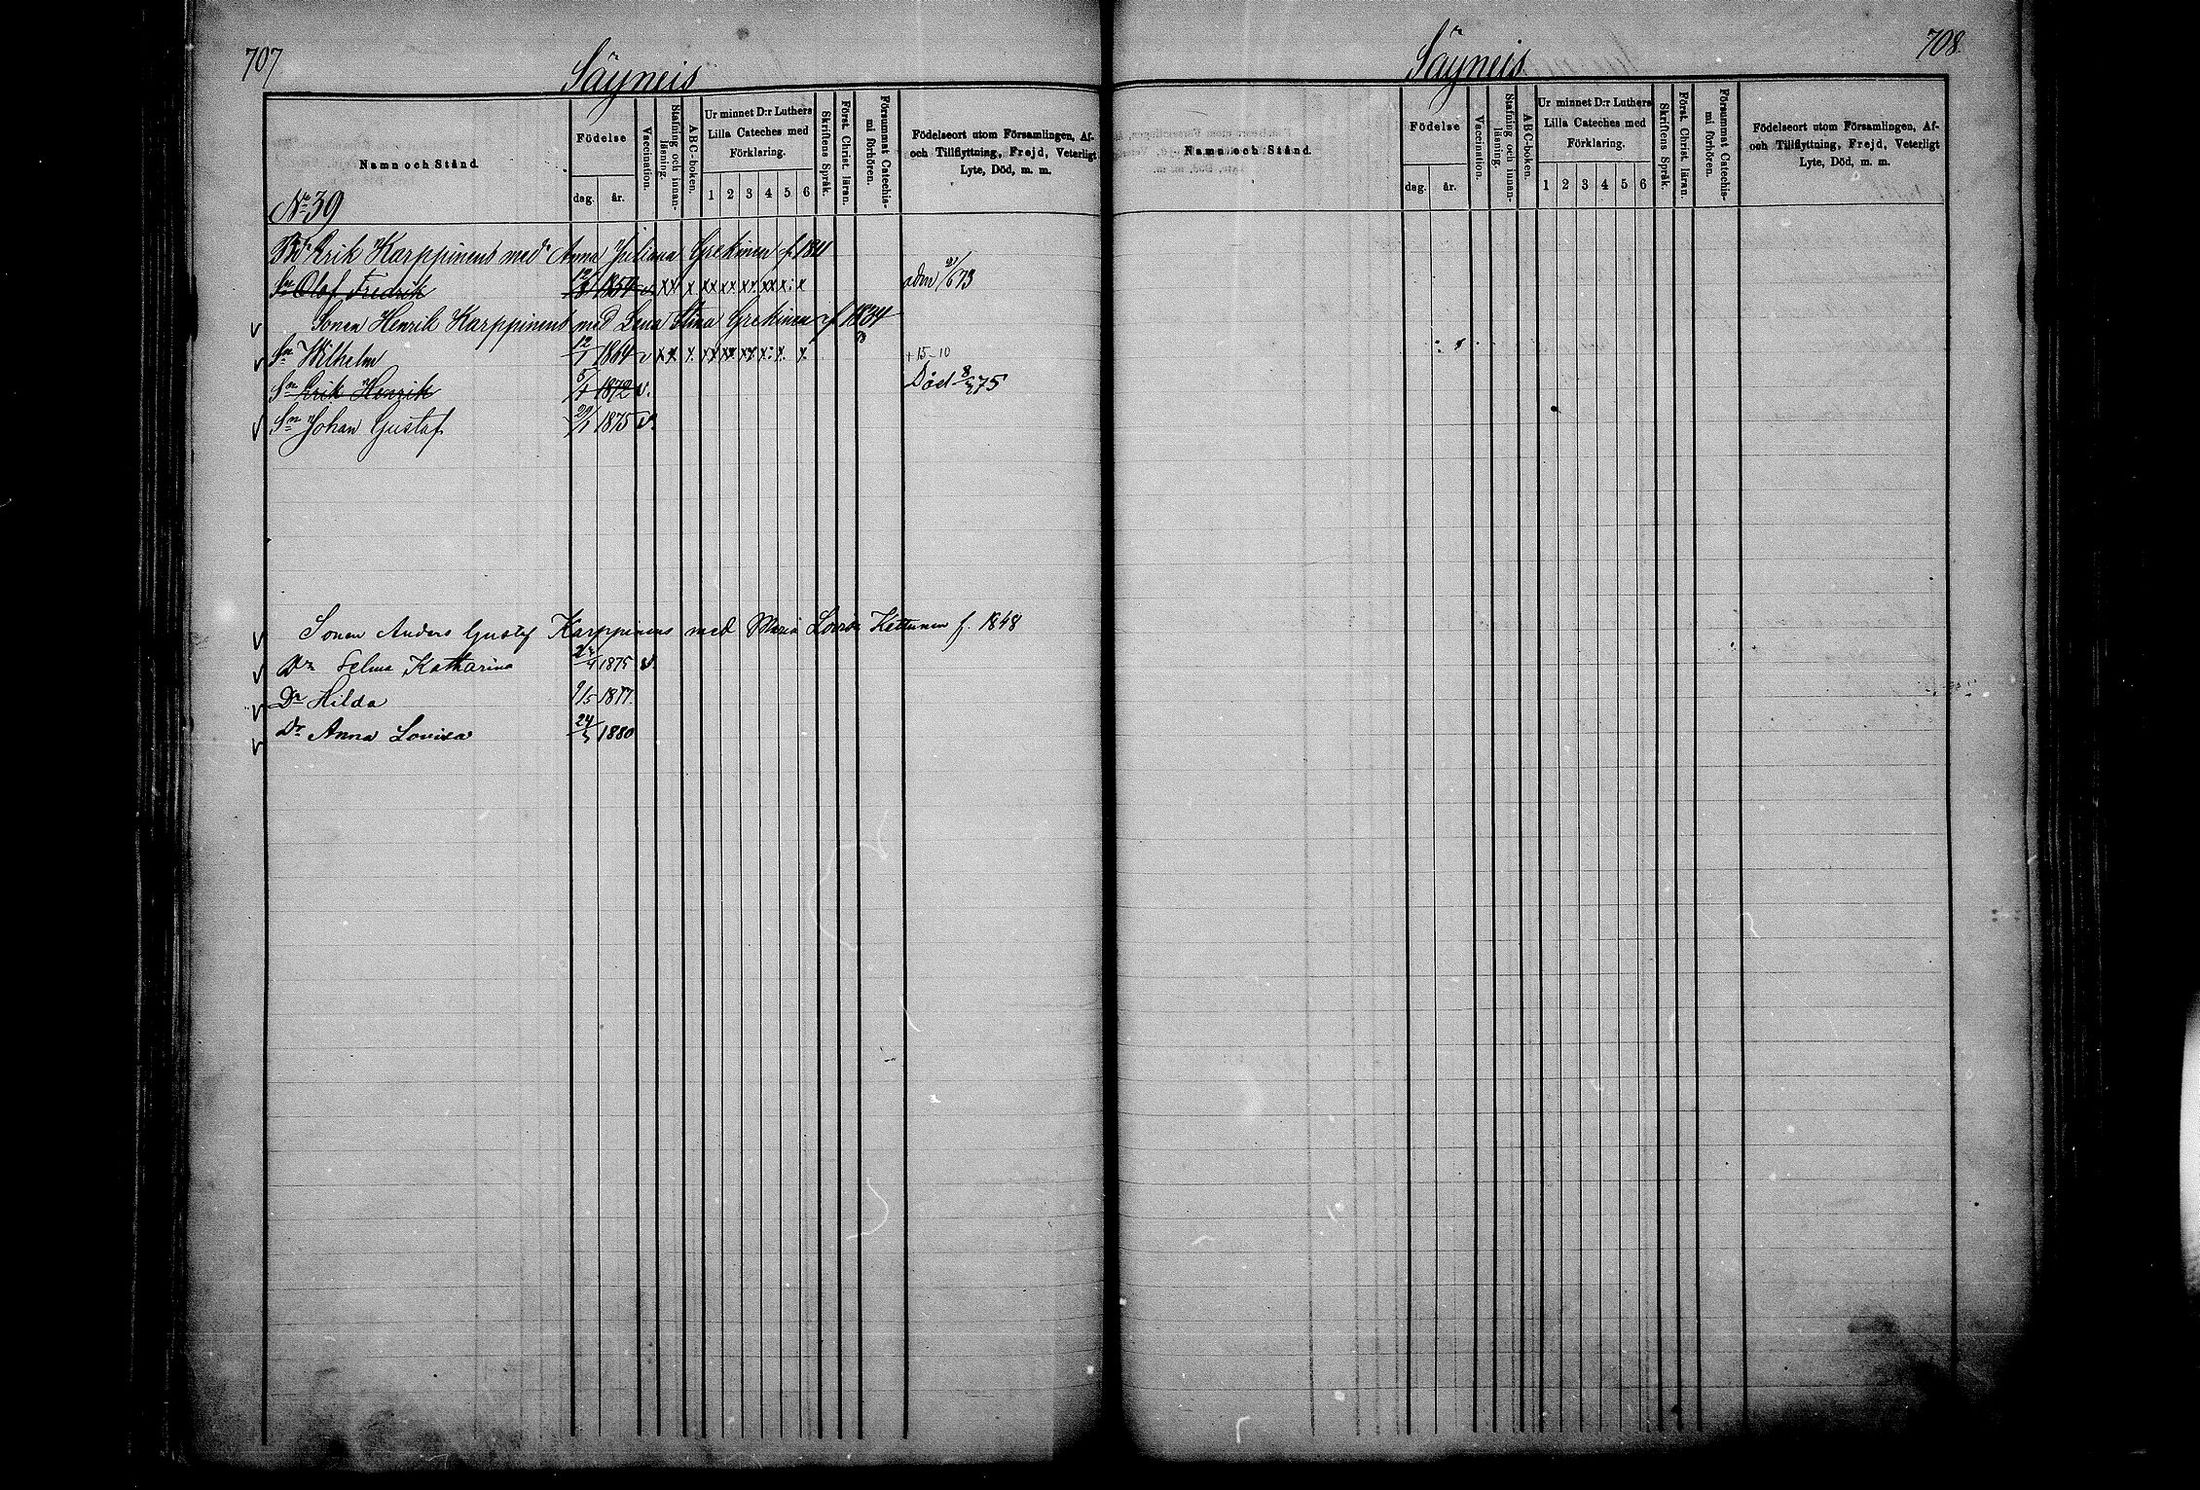 707
Säyneis
Namn och Stånd.
Födelse
dag. år.
Vaccination.
Stafning och innanläsning.
ABC-boken.
Ur minnet D:r Luthers Lilla Cateches med Förklaring.
1 2 3 4 5 6
Skriftens Språk.
Först. Christ. läran.
Försummat Catechismi förhören.
Födelseort utom Församlingen, Af- och Tillflyttning, Frejd, Veterligt Lyte, Död, m. m.
No 39
Erik Karppinens med Anna Juliana Grekinen f. 1811
Sn Olof Fredrik 1857 v xx x xx xx xx xx x: x adm 21/6 73
v Sonen Henrik Karppinens med Lena Stina Grekinen f. 1834
v Sn Wilhelm 12/1 1864 v xx x xx xx xx x: x x + 15-10
Sn Erik Henrik 5/4 1872 v. Död 8/3 75
v Sn Johan Gustaf 29/1 1875 v.
v Sonen Anders Gustaf Karppinens med Maria Lovisa Kettunen f. 1848
v Dr Selma Katharina 1875 v
v Dr Hilda 9/5 1877.
v Dr Anna Lovisa 24/5 1880
Säyneis
708
Namn och Stånd.
Födelse
dag. år.
Vaccination.
Stafning och innanläsning.
ABC-boken.
Ur minnet D:r Luthers Lilla Cateches med Förklaring.
1 2 3 4 5 6
Skriftens Språk.
Först. Christ. läran.
Försummat Catechismi förhören.
Födelseort utom Församlingen, Af- och Tillflyttning, Frejd, Veterligt Lyte, Död, m. m.